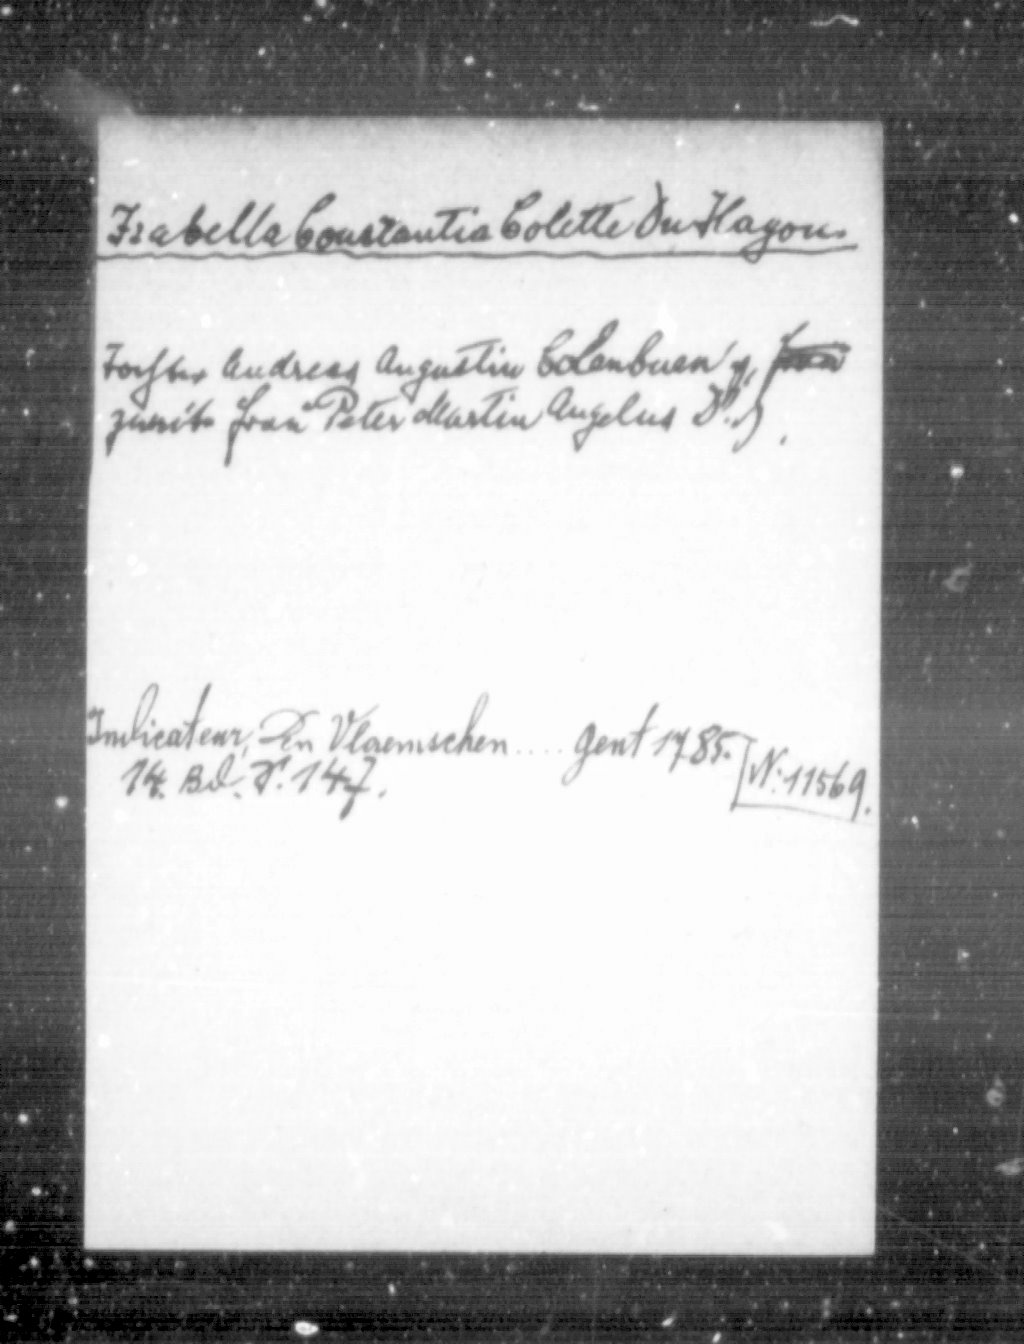 Isabella Constantia Colette Du Hayon.
Tochter Andreas Augustin
zuerst Frau Peter Martin Angelus D.
Indicateur, Den Vlaemschen .... Gent 1785.
14. Bd. S. 147. [N: 11569.